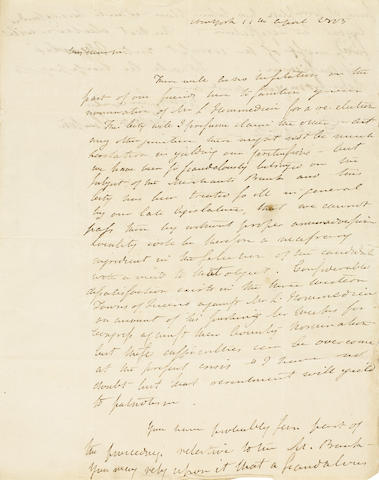 New York 11th April 1803
My dear sir.
There will be no hesitation on the
part of our friends here to further your
nomination of Mr L'Hommedieu for a re-election
The City will I presume claim the other - at
any other juncture there might not be much
hesitation in yielding our pretensions - but
we have been so scandalously belied on the
subject of the Merchants Bank and this
City has been treated so ill in general
by our late Legislature, that we cannot
pass them by without proper animadversion
locality will be therefore a necessary
ingredient in the selection of the candidate
with a view to that object. Considerable
dissatisfaction exists in the three western
Towns of Queens against Mr L'Hommedieu
on account of his pushing for
Congress against their County nomination
but these difficulties can be overcome
at the present crisis & I have no
doubt but that resentment will yield
to patriotism.
You have probably seen part of
the proceedings relative to the M. Bank -
You may rely upon it that a scandalous